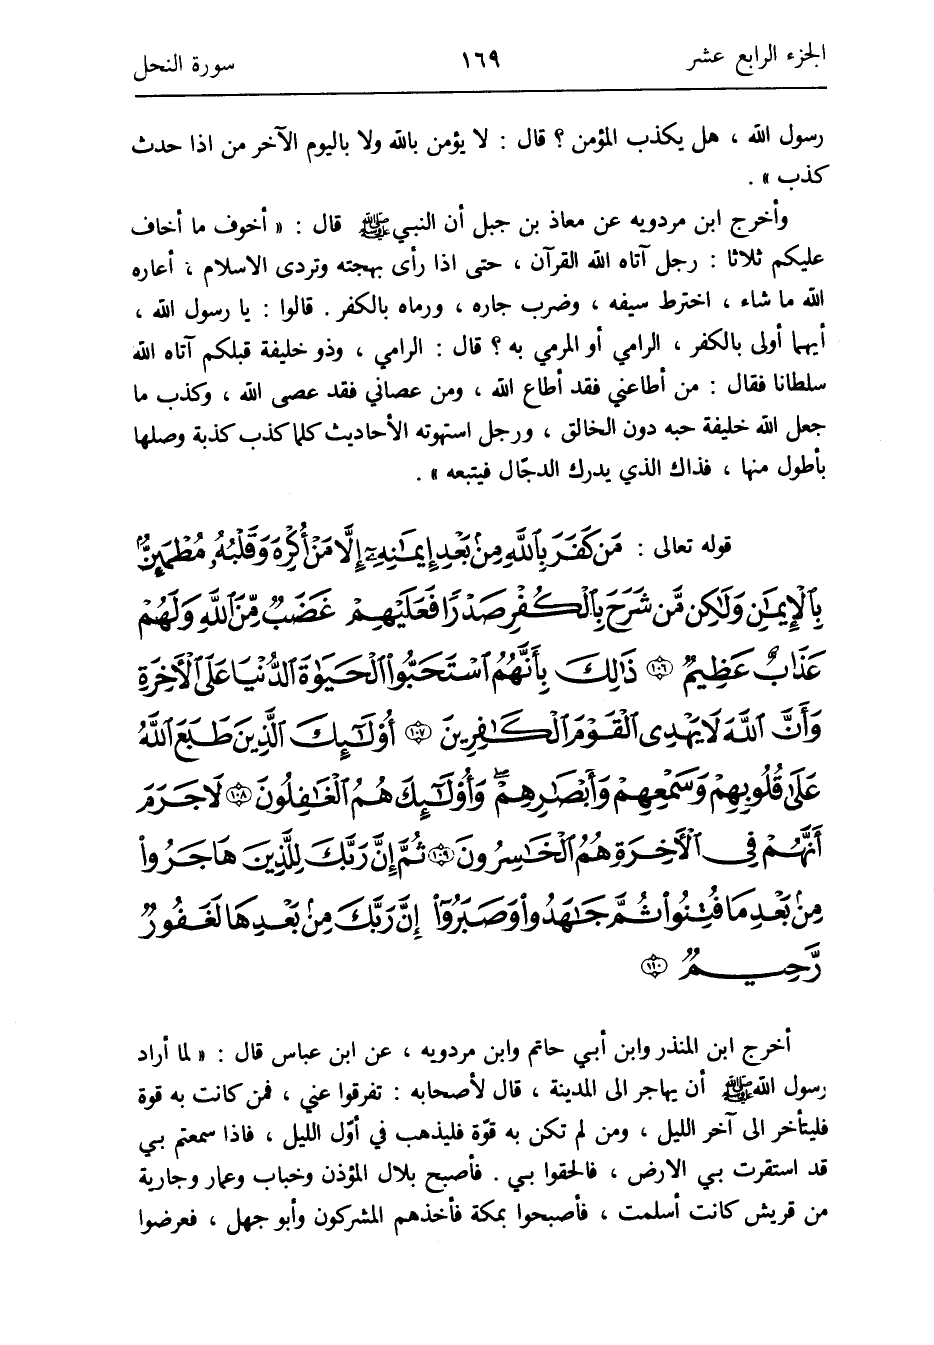 الجزء الرابع عشر
١٦٩
سورة النحل
رسول الله ، هل يكذب المؤمن ؟ قال : لا يؤمن بالله ولا باليوم الآخر من اذا حدث
كذب » .
وأخرج ابن مردويه عن معاذ بن جبل أن النبي ﷺ قال : « أخوف ما أخاف
عليكم ثلاثا : رجل آتاه الله القرآن ، حتى اذا رأى بهجته وتردى الاسلام ، أعاره
الله ما شاء ، اخترط سيفه ، وضرب جاره ، ورماه بالكفر . قالوا : يا رسول الله ،
أيهما أولى بالكفر ، الرامي أو المرمي به ؟ قال : الرامي ، وذو خليفة قبلكم آتاه الله
سلطانا فقال : من أطاعني فقد أطاع الله ، ومن عصاني فقد عصى الله ، وكذب ما
جعل الله خليفة حبه دون الخالق ، ورجل استهوته الأحاديث كلما كذب كذبة وصلها
بأطول منها ، فذاك الذي يدرك الدجّال فيتبعه » .
قوله تعالى : مَن كَفَرَ بِٱللَّهِ مِنۢ بَعْدِ إِيمَٰنِهِۦٓ إِلَّا مَنْ أُكْرِهَ وَقَلْبُهُۥ مُطْمَئِنٌّۢ
بِٱلْإِيمَٰنِ وَلَٰكِن مَّن شَرَحَ بِٱلْكُفْرِ صَدْرًا فَعَلَيْهِمْ غَضَبٌ مِّنَ ٱللَّهِ وَلَهُمْ
عَذَابٌ عَظِيمٌ ١٠٦ ذَٰلِكَ بِأَنَّهُمُ ٱسْتَحَبُّوا۟ ٱلْحَيَوٰةَ ٱلدُّنْيَا عَلَى ٱلْأَخِرَةِ
وَأَنَّ ٱللَّهَ لَا يَهْدِى ٱلْقَوْمَ ٱلْكَٰفِرِينَ ١٠٧ أُو۟لَٰٓئِكَ ٱلَّذِينَ طَبَعَ ٱللَّهُ
عَلَىٰ قُلُوبِهِمْ وَسَمْعِهِمْ وَأَبْصَٰرِهِمْ ۖ وَأُو۟لَٰٓئِكَ هُمُ ٱلْغَٰفِلُونَ ١٠٨ لَا جَرَمَ
أَنَّهُمْ فِى ٱلْأَخِرَةِ هُمُ ٱلْخَٰسِرُونَ ١٠٩ ثُمَّ إِنَّ رَبَّكَ لِلَّذِينَ هَاجَرُوا۟
مِنۢ بَعْدِ مَا فُتِنُوا۟ ثُمَّ جَٰهَدُوا۟ وَصَبَرُوٓا۟ إِنَّ رَبَّكَ مِنۢ بَعْدِهَا لَغَفُورٌ
رَّحِيمٌ ١١٠
أخرج ابن المنذر وابن أبي حاتم وابن مردويه ، عن ابن عباس قال : « لما أراد
رسول الله ﷺ أن يهاجر الى المدينة ، قال لأصحابه : تفرقوا عني ، فمن كانت به قوة
فليتأخر الى آخر الليل ، ومن لم تكن به قوّة فليذهب في أوّل الليل ، فاذا سمعتم بي
قد استقرت بي الارض ، فالحقوا بي . فأصبح بلال المؤذن وخباب وعمار وجارية
من قريش كانت أسلمت ، فأصبحوا بمكة فأخذهم المشركون وأبو جهل ، فعرضوا